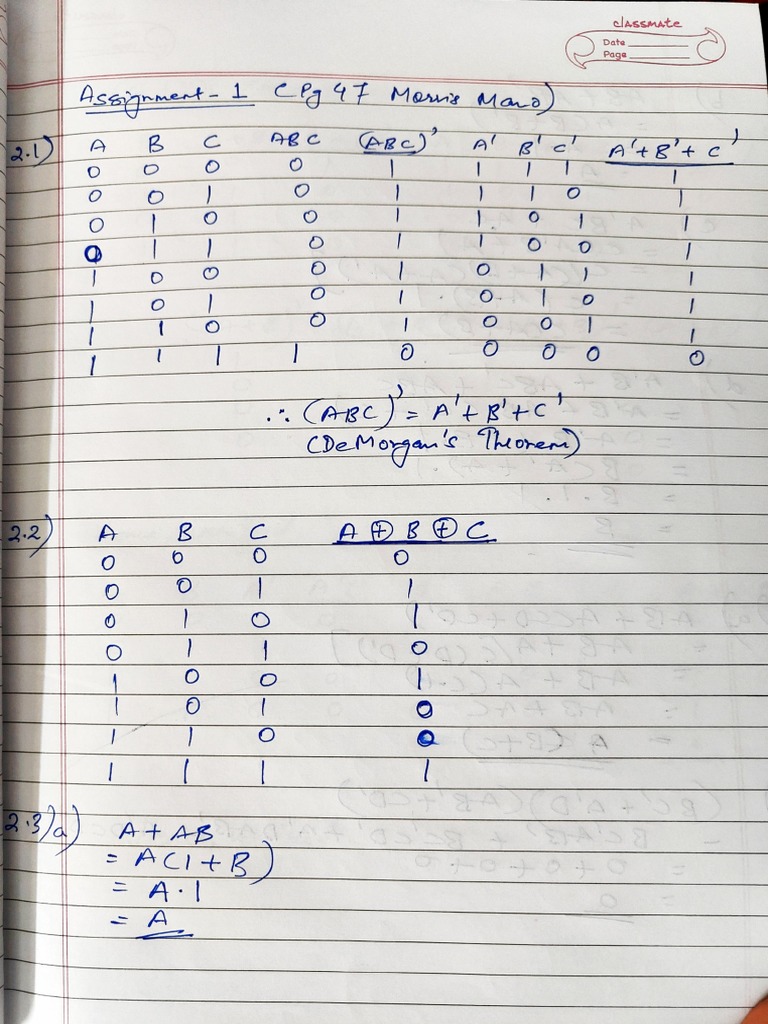 classmate
Date
Page
Assignment - 1 (Pg 47 Morris Mano)
2.1) A B C ABC (ABC)' A' B' C' A'+B'+C'
0 0 0 0 1 1 1 1 1
0 0 1 0 1 1 1 0 1
0 1 0 0 1 1 0 1 1
0 1 1 0 1 1 0 0 1
1 0 0 0 1 0 1 1 1
1 0 1 0 1 0 1 0 1
1 1 0 0 1 0 0 1 1
1 1 1 1 0 0 0 0 0
∴ (ABC)' = A'+B'+C'
(DeMorgan's Theorem)
2.2) A B C A ⊕ B ⊕ C
0 0 0 0
0 0 1 1
0 1 0 1
0 1 1 0
1 0 0 1
1 0 1 0
1 1 0 0
1 1 1 1
2.3) a) A + AB
= A(1+B)
= A·1
= A